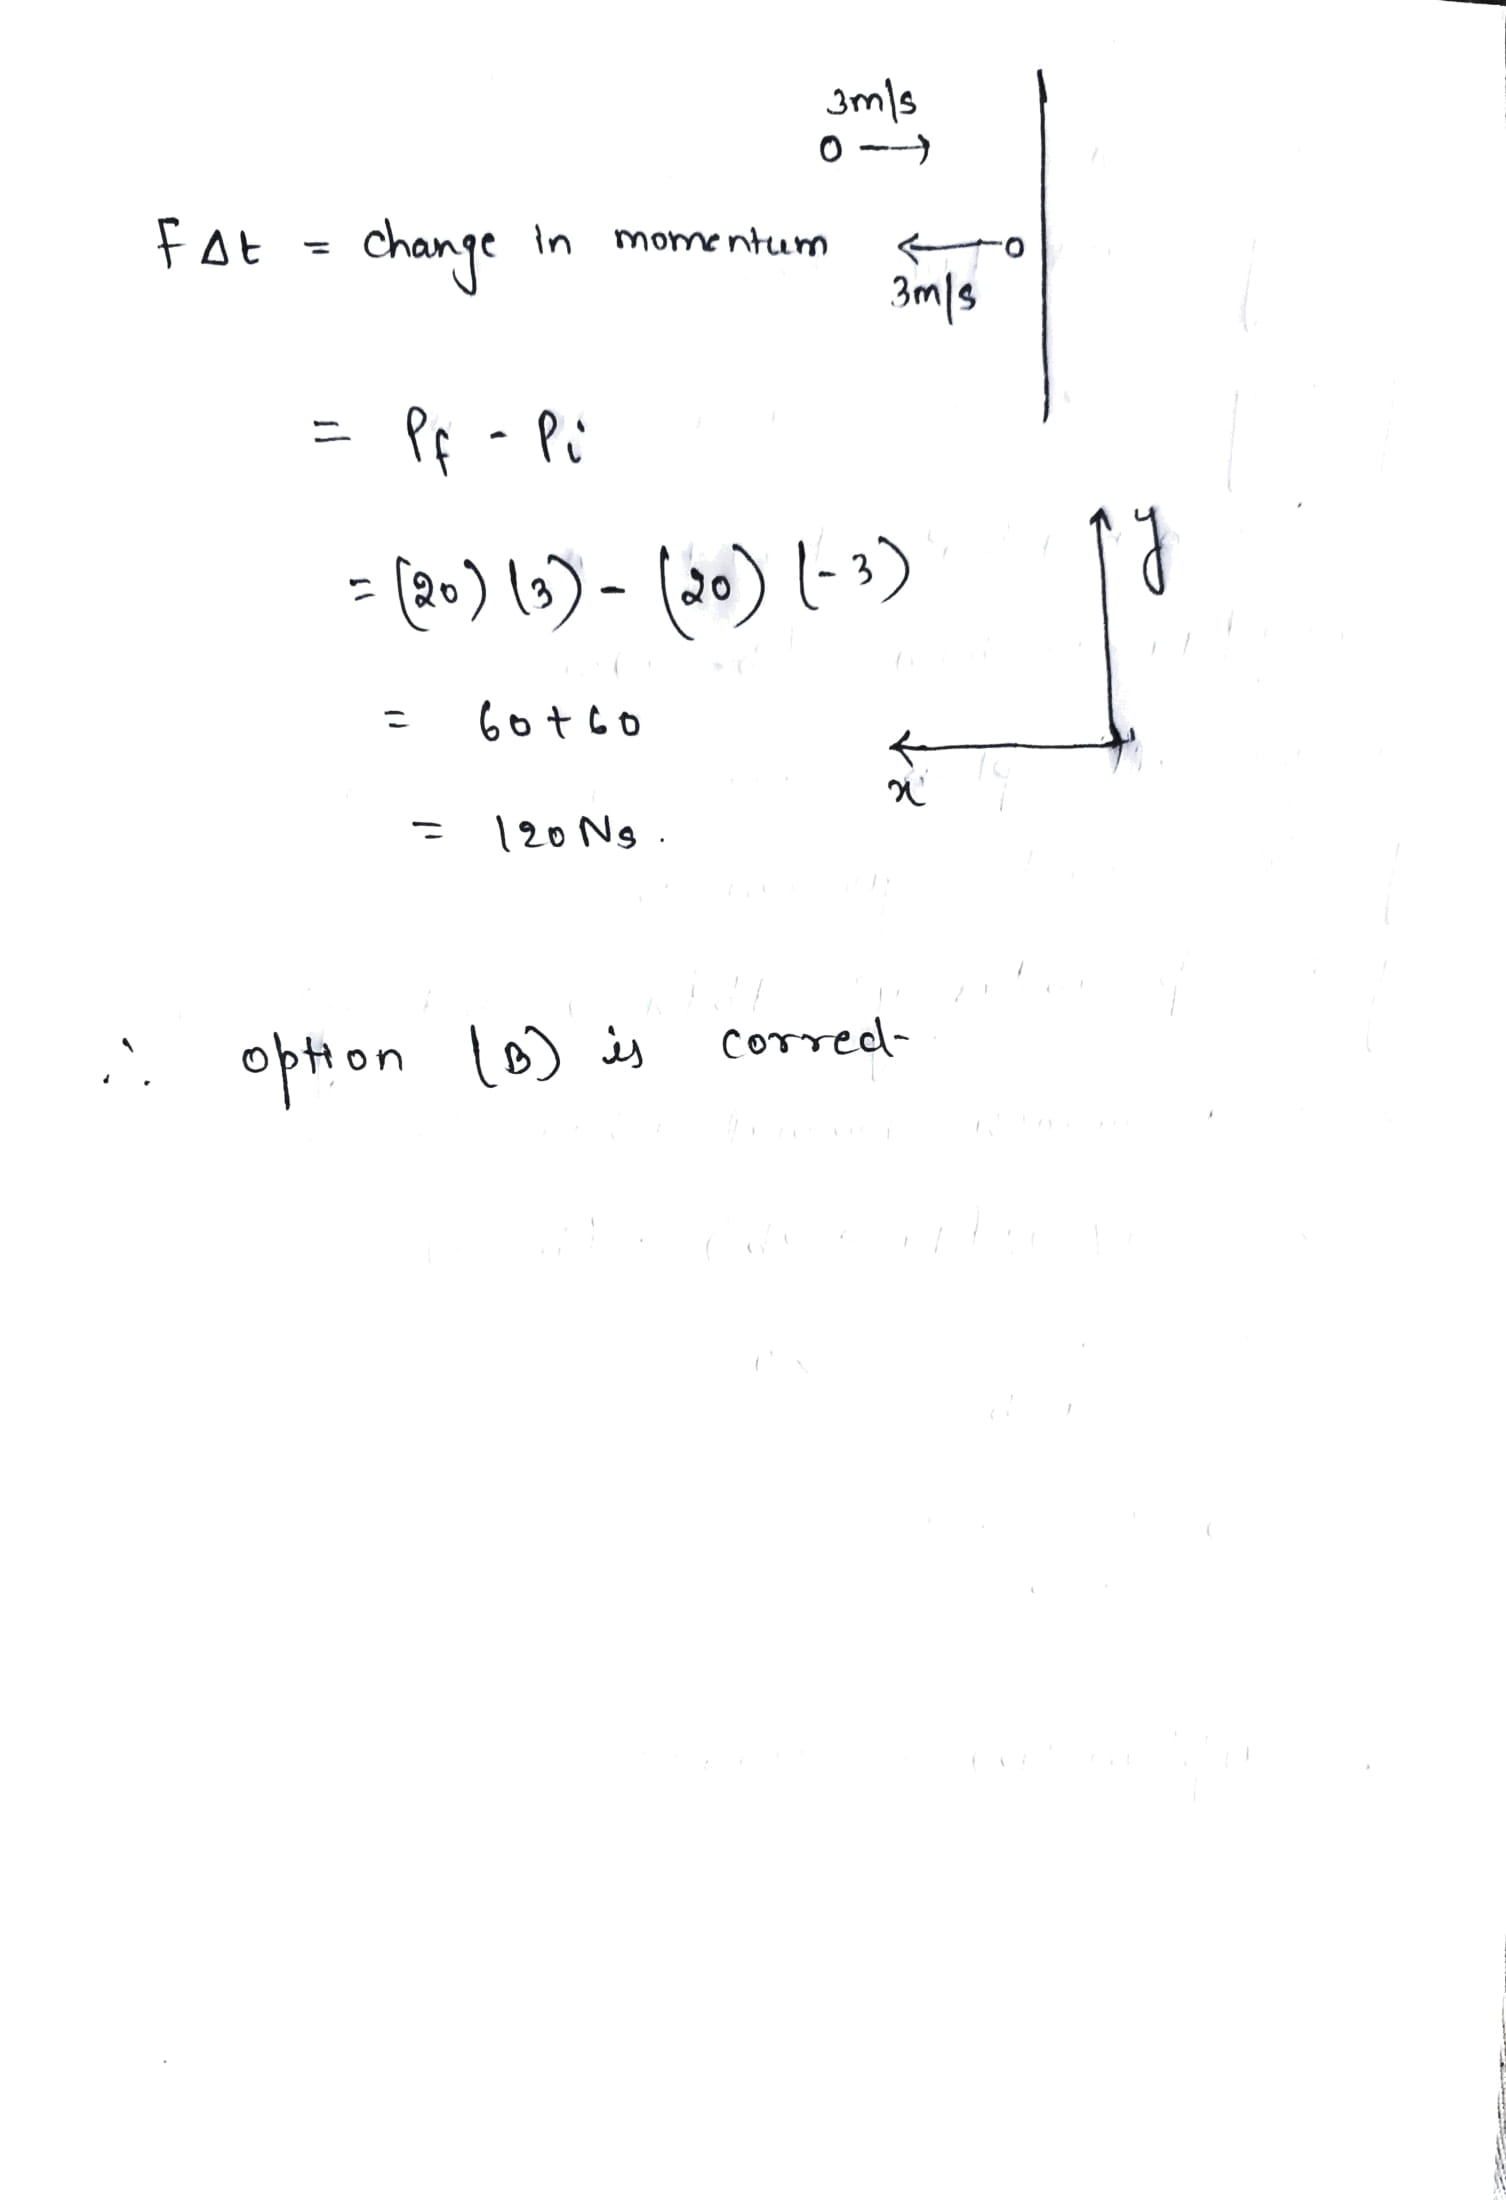 3m/s
0 →
F Δt = change in momentum
← 0
3m/s
= Pf - Pi
y
= (20) (3) - (20) (-3)
= 60 + 60
x
= 120 Ns.
∴ option (B) is correct